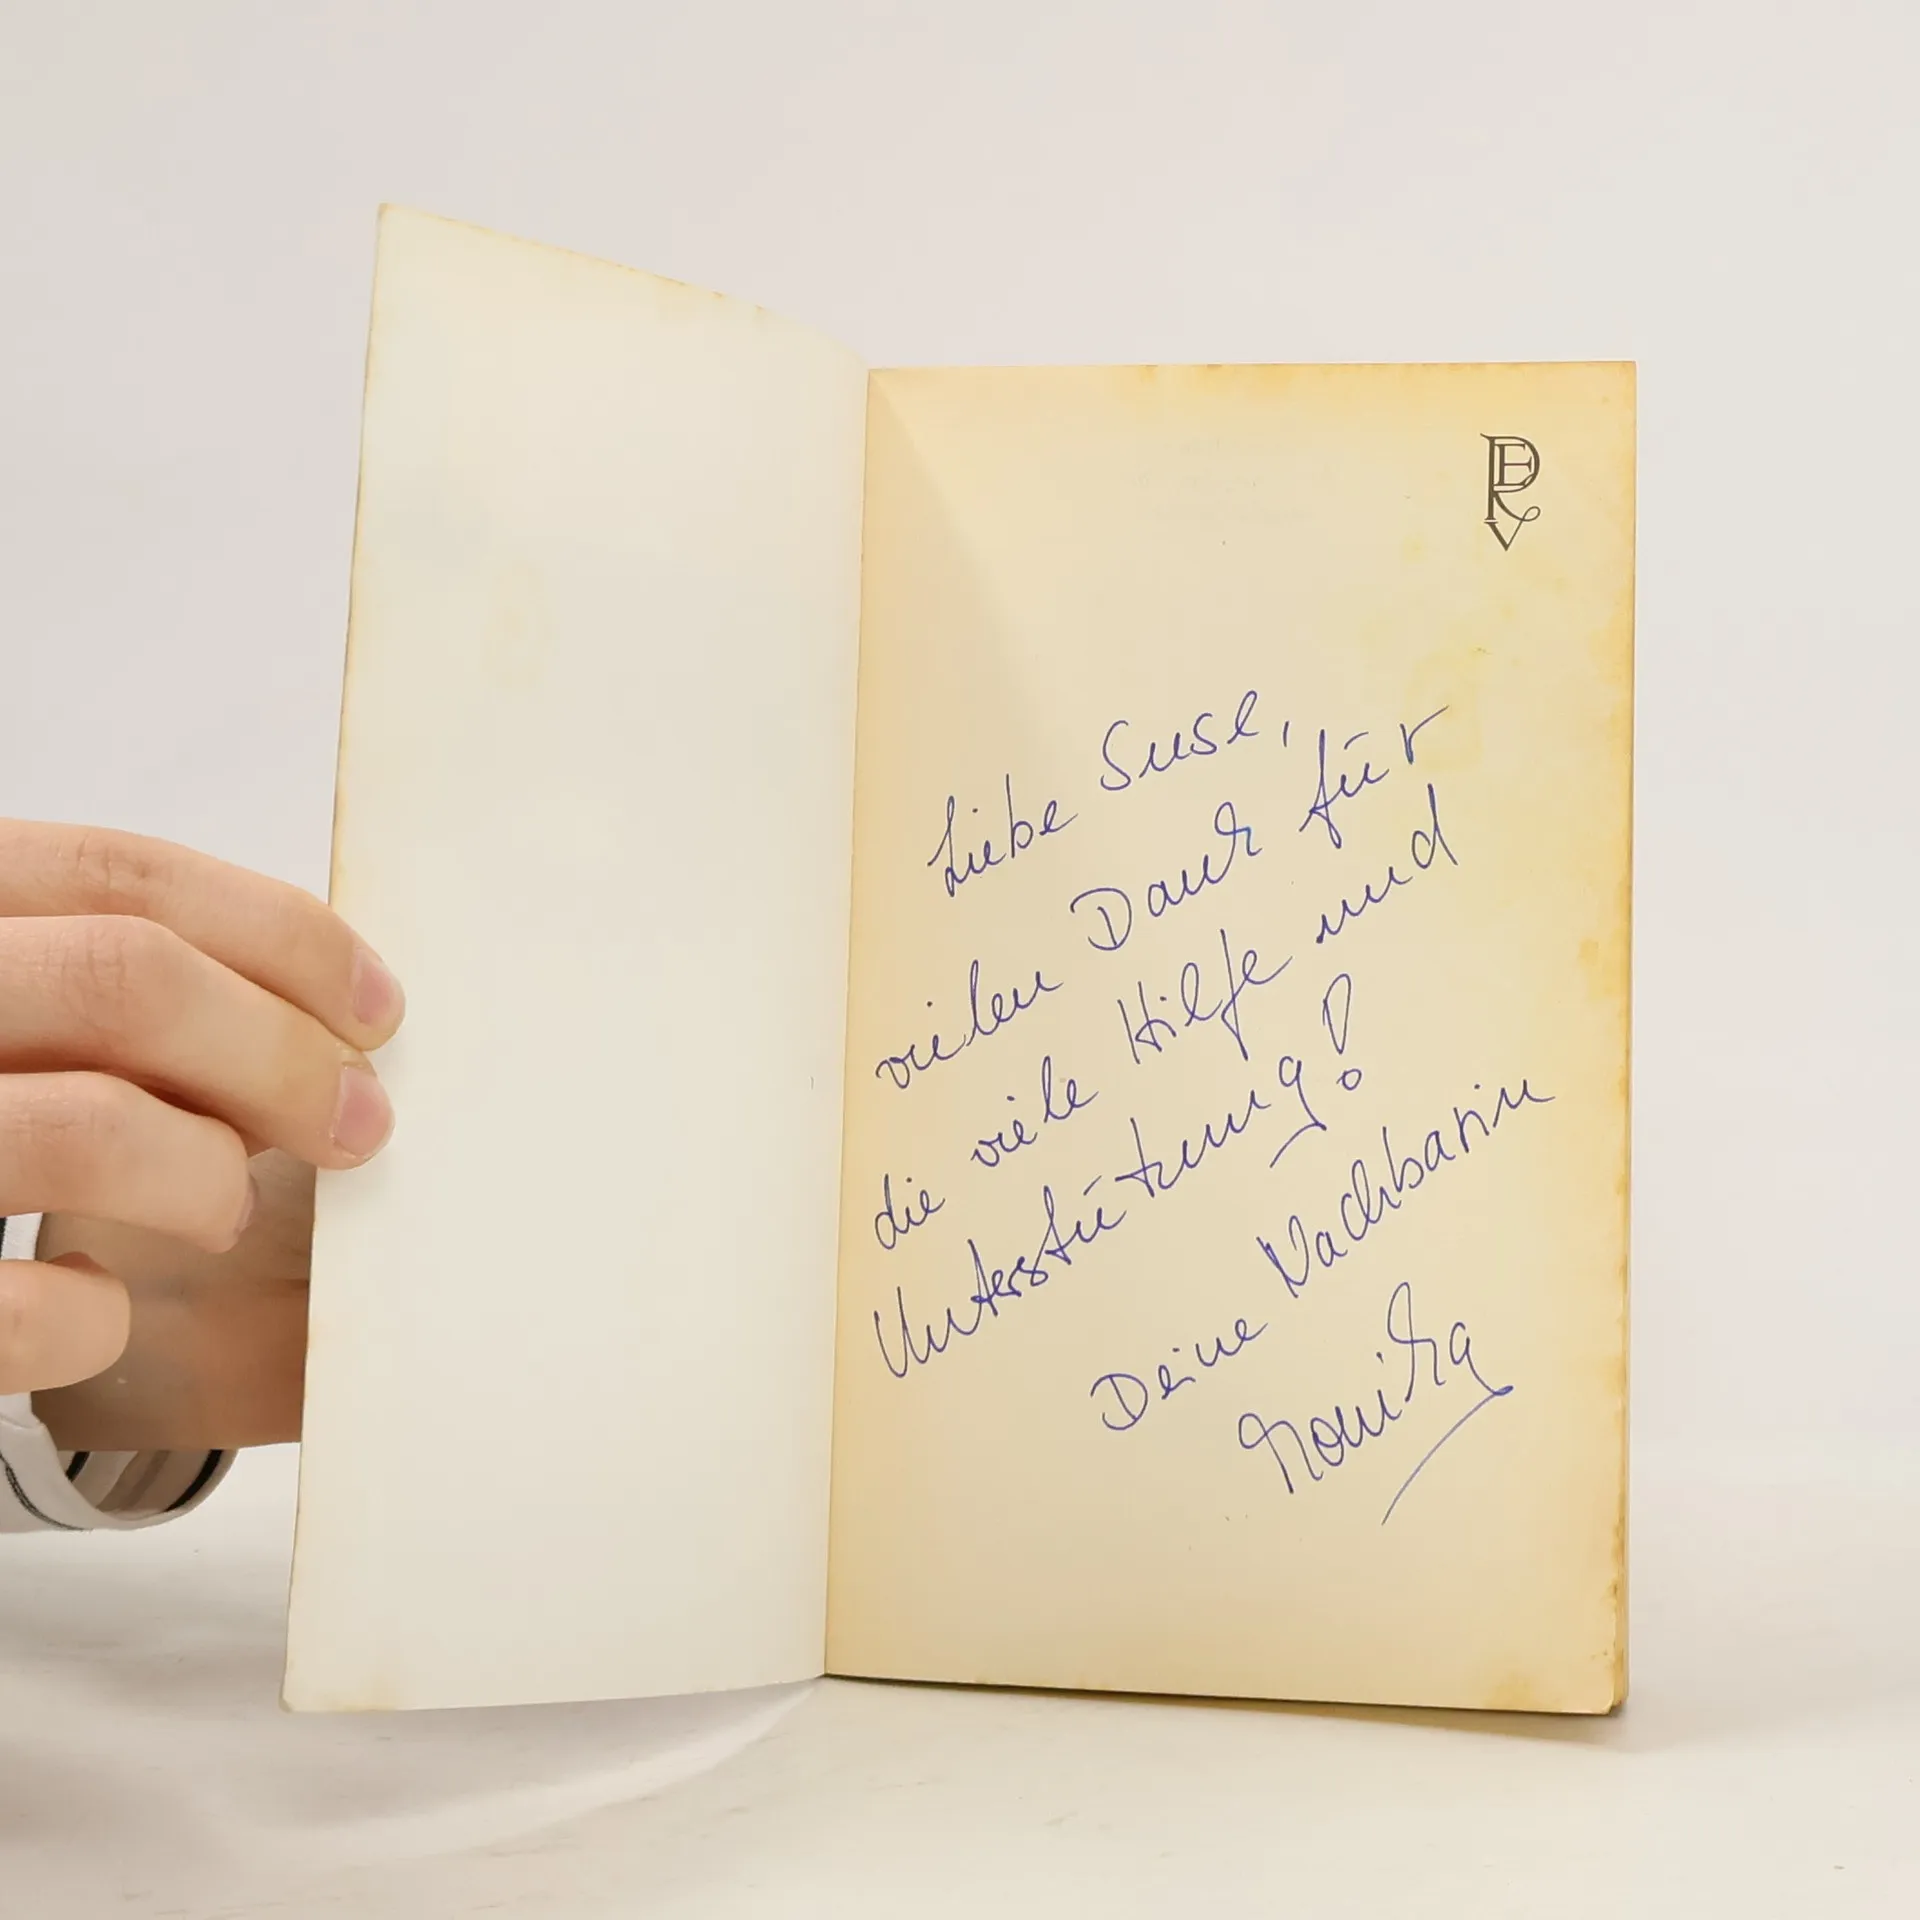 PERV
Liebe Suse,
vielen Dank für
die viele Hilfe und
Unterstützung!
Deine Nachbarin
Monika